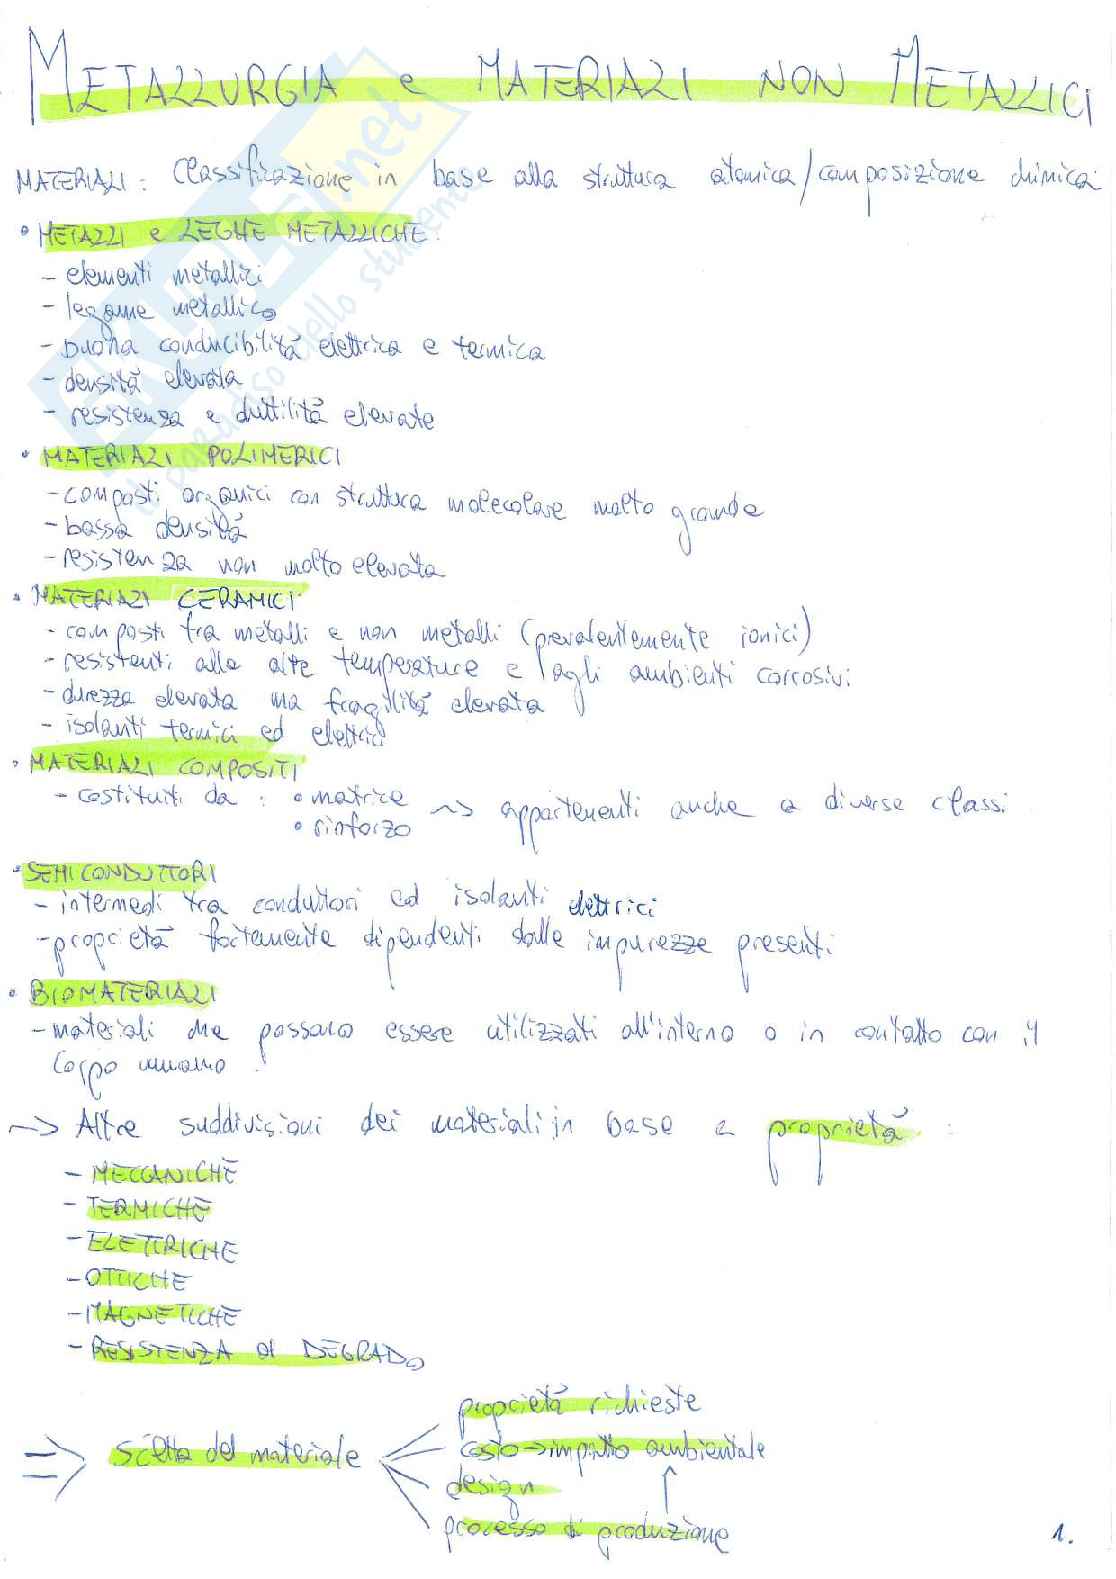 METALLURGIA e MATERIALI NON METALLICI
MATERIALI: Classificazione in base alla struttura atomica/composizione chimica
• METALLI e LEGHE METALLICHE:
- elementi metallici
- legame metallico
- buona conducibilità elettrica e termica
- densità elevata
- resistenza e duttilità elevate
• MATERIALI POLIMERICI
- composti organici con struttura molecolare molto grande
- bassa densità
- resistenza non molto elevata
• MATERIALI CERAMICI
- composti tra metalli e non metalli (prevalentemente ionici)
- resistenti alle alte temperature e agli ambienti corrosivi
- durezza elevata ma fragilità elevata
- isolanti termici ed elettrici
• MATERIALI COMPOSITI
- costituiti da: • matrice ~> appartenenti anche a diverse classi
• rinforzo
• SEMICONDUTTORI
- intermedi tra conduttori ed isolanti elettrici
- proprietà fortemente dipendenti dalle impurezze presenti
• BIOMATERIALI
- materiali che possano essere utilizzati all'interno o in contatto con il
corpo umano
~> Altre suddivisioni dei materiali in base a proprietà:
- MECCANICHE
- TERMICHE
- ELETTRICHE
- OTTICHE
- MAGNETICHE
- RESISTENZA al DEGRADO
=> scelta del materiale
proprietà richieste
costo → impatto ambientale
design
processo di produzione
1.
SKUOLA.net
il paradiso dello studente